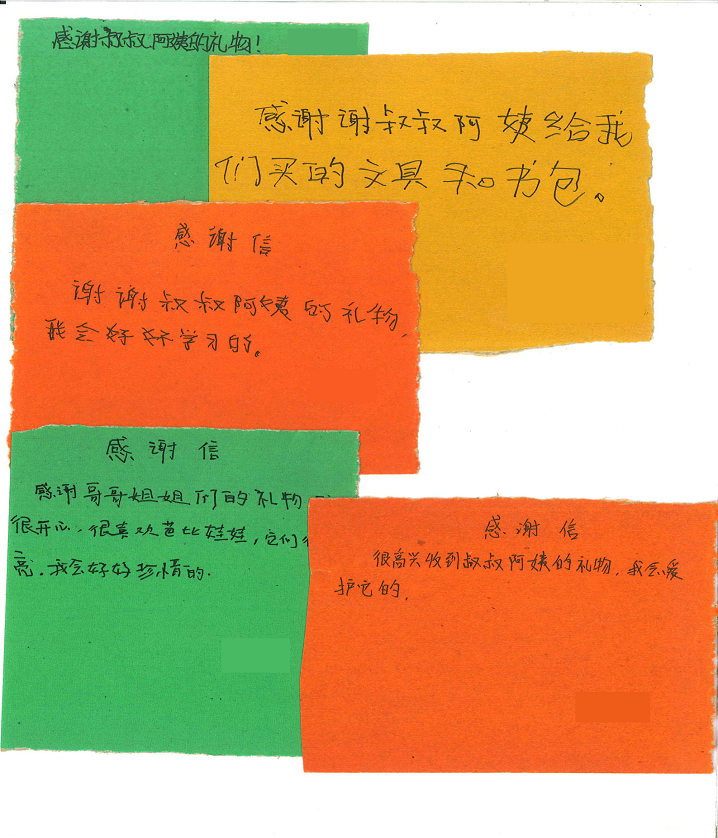 感谢叔叔阿姨的礼物！
感谢谢叔叔阿姨给我
们买的文具和书包。
感谢信
谢谢叔叔阿姨的礼物，
我会好好学习的。
感谢信
感谢哥哥姐姐们的礼物
很开心．很喜欢芭比娃娃，它们很
亮．我会好好珍惜的．
感谢信
很高兴收到叔叔阿姨的礼物．我会爱
护它的．